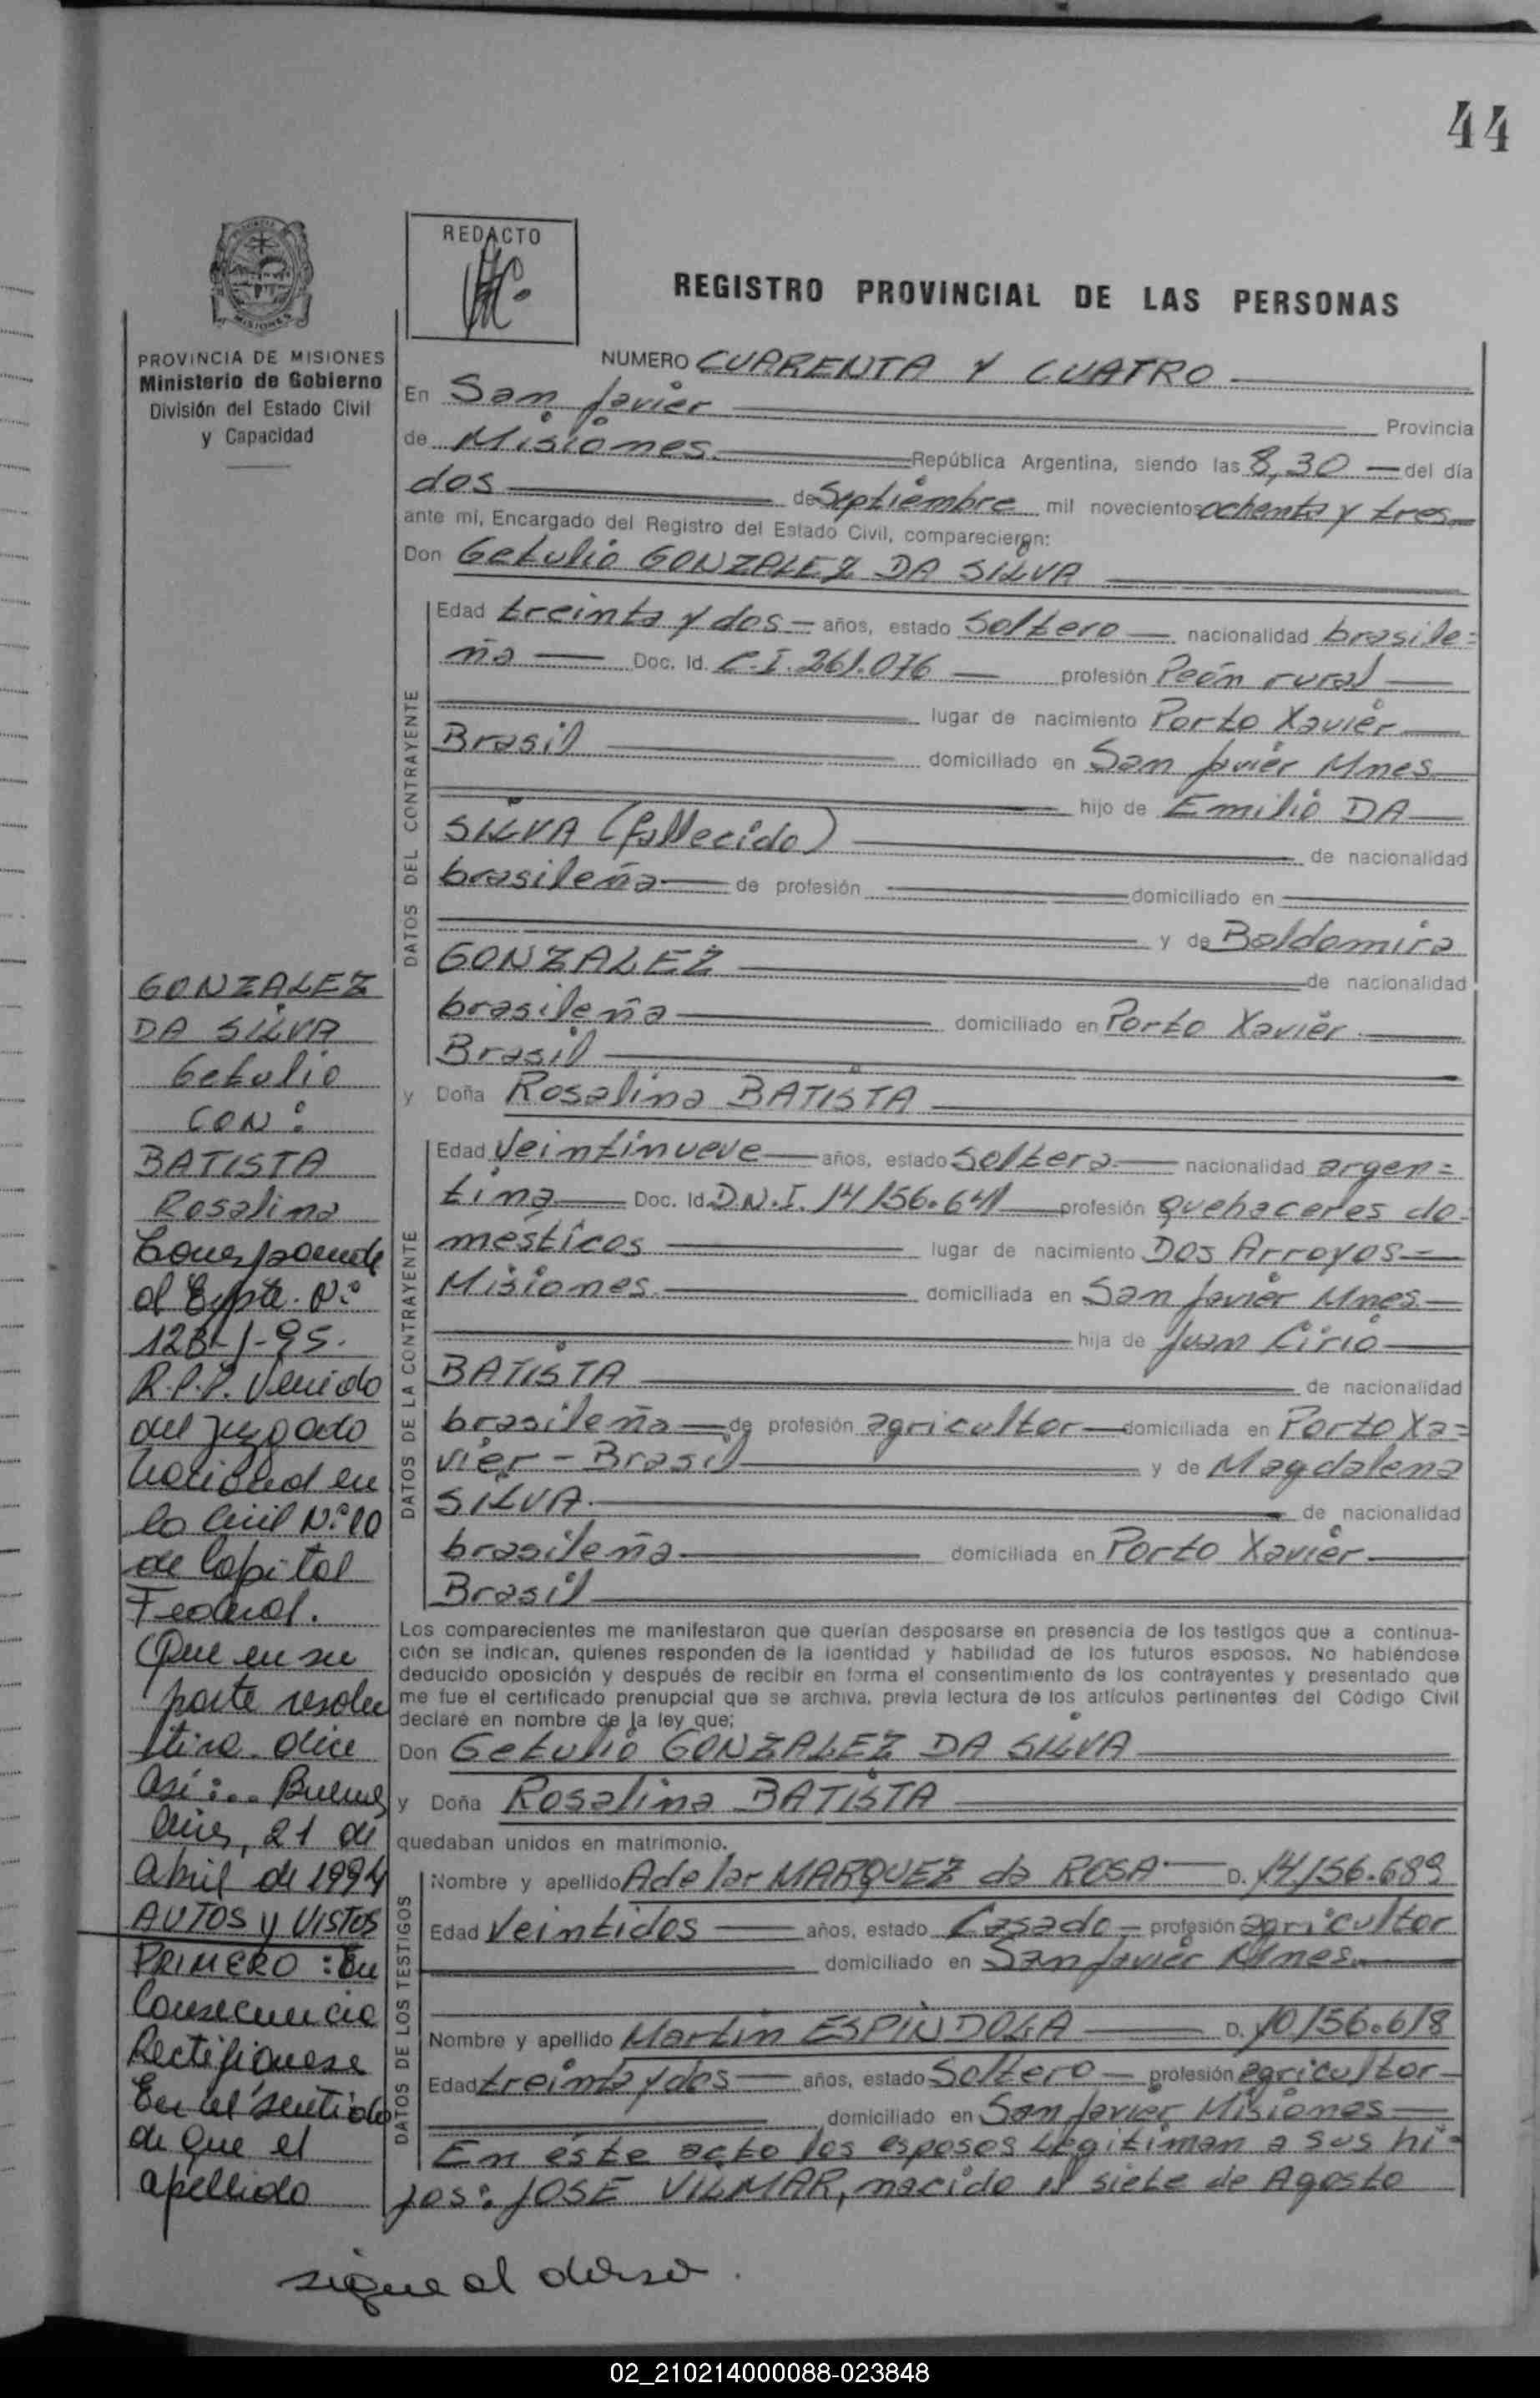 44
REDACTO
REGISTRO PROVINCIAL DE LAS PERSONAS
MISIONES
PROVINCIA DE MISIONES
Ministerio de Gobierno
División del Estado Civil
y Capacidad
NUMERO CUARENTA Y CUATRO
En San Javier Provincia
de Misiones República Argentina, siendo las 8,30 del día
dos de Septiembre mil novecientos ochenta y tres
ante mí, Encargado del Registro del Estado Civil, comparecieron:
Don Getulio GONZALEZ DA SILVA
DATOS DEL CONTRAYENTE
Edad treinta y dos años, estado Soltero nacionalidad brasile=
ña Doc. Id. C.I. 261.076 profesión Peón rural
lugar de nacimiento Porto Xavier
Brasil domiciliado en San Javier Mnes
hijo de Emilio DA
SILVA (fallecido) de nacionalidad
brasileña de profesión domiciliado en
y de Baldomira
GONZALEZ de nacionalidad
brasileña domiciliado en Porto Xavier
Brasil
y Doña Rosalina BATISTA
DATOS DE LA CONTRAYENTE
Edad Veintinueve años, estado Soltera nacionalidad argen=
tina Doc. Id. D.N.I. 14156.641 profesión quehaceres do=
mésticos lugar de nacimiento Dos Arroyos
Misiones domiciliada en San Javier Mnes.
hija de Juan Cirio
BATISTA de nacionalidad
brasileña de profesión agricultor domiciliada en Porto Xa=
vier - Brasil y de Magdalena
SILVA. de nacionalidad
brasileña domiciliada en Porto Xavier
Brasil
Los comparecientes me manifestaron que querían desposarse en presencia de los testigos que a continua-
ción se indican, quienes responden de la identidad y habilidad de los futuros esposos. No habiéndose
deducido oposición y después de recibir en forma el consentimiento de los contrayentes y presentado que
me fue el certificado prenupcial que se archiva, previa lectura de los artículos pertinentes del Código Civil
declaré en nombre de la ley que;
Don Getulio GONZALEZ DA SILVA
y Doña Rosalina BATISTA
quedaban unidos en matrimonio.
DATOS DE LOS TESTIGOS
Nombre y apellido Adelar MARQUEZ da ROSA D. 14156.689
Edad Veintidos años, estado Casado profesión agricultor
domiciliado en San Javier Mnes.
Nombre y apellido Martin ESPINDOLA D. 10156.618
Edad treinta y dos años, estado Soltero profesión agricultor
domiciliado en San Javier Misiones
En éste acto los esposos legitiman a sus hi=
jos: JOSE VILMAR, nacido el siete de Agosto
GONZALEZ
DA SILVA
Getulio
CON:
BATISTA
Rosalina
Corresponde
al Expte. Nº
123-1-95.
R.P.P. Venido
del juzgado
Nacional en
lo Civil Nº 10
de Capital
Federal.
(Que en su
parte resolu
tiva dice
así:... Buenos
Aires, 21 de
abril de 1994
AUTOS y VISTOS
PRIMERO: En
Consecuencia
Rectifiquese
En el sentido
de que el
apellido
sigue al dorso.
02_210214000088-023848